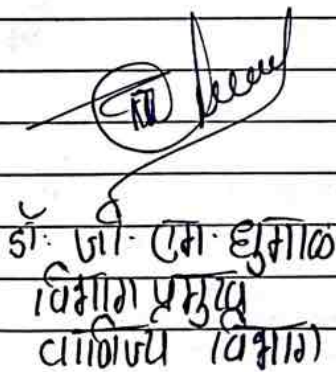 डॉ. जी. एम. धुमाळ
विभाग प्रमुख
वाणिज्य विभाग